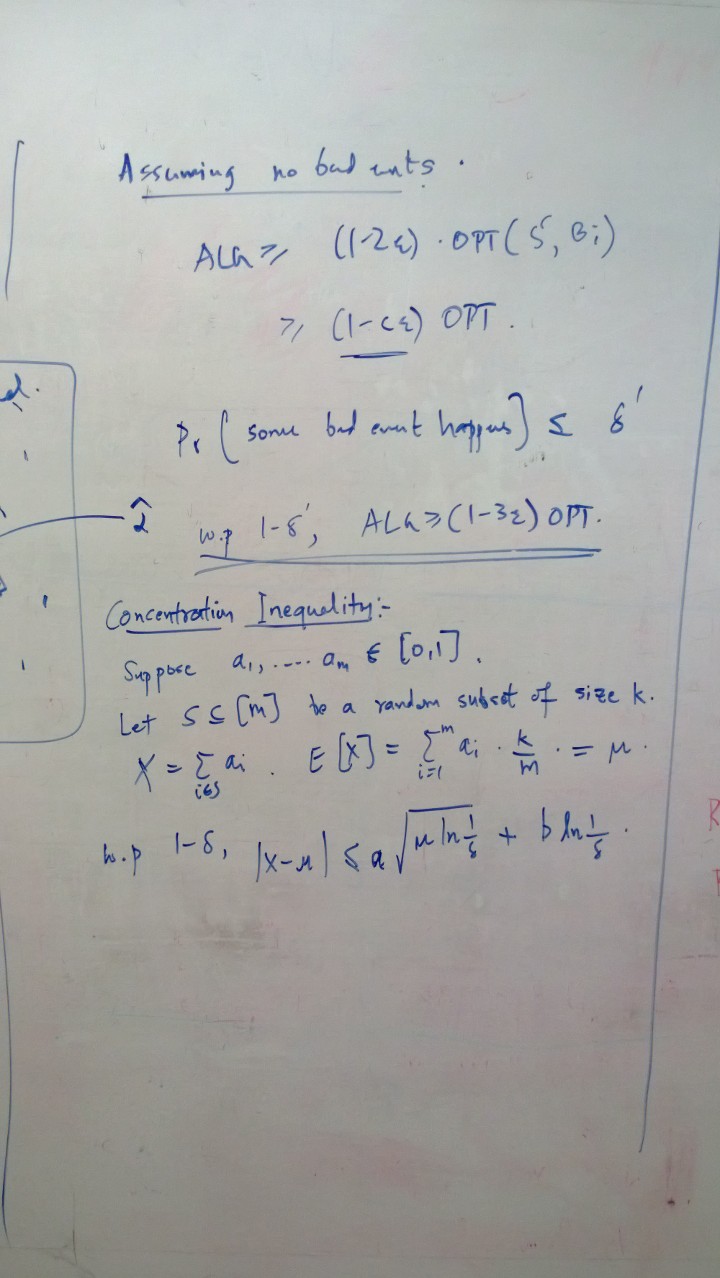 Assuming no bad events.
ALG ≥ (1-2ε) · OPT(S, Bi)
≥ (1-cε) OPT.
Pr [some bad event happens] ≤ δ'
w.p 1-δ', ALG ≥ (1-3ε) OPT.
Concentration Inequality:-
Suppose a1, .... am ∈ [0,1].
Let S ⊆ [m] be a random subset of size k.
X = Σ_{i∈S} ai. E[X] = Σ_{i=1}^{m} ai · k/m · = μ.
w.p 1-δ, |X-μ| ≤ a √(μ ln 1/δ) + b ln 1/δ.